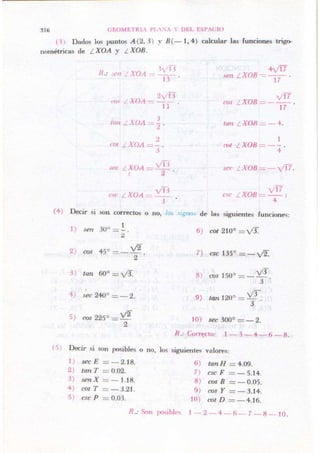 316 GEOMETRIA PLANA Y DEL ESPACIO
(3) Dados los puntos A (2, 3) y B(— 1, 4) calcular las funciones trigo-
nométricas de ∠XOA y ∠XOB.
R.: sen ∠XOA = 3√13/13 . sen ∠XOB = 4√17/17 .
cos ∠XOA = 2√13/13 . cos ∠XOB = — √17/17 .
tan ∠XOA = 3/2 . tan ∠XOB = — 4.
cot ∠XOA = 2/3 . cot ∠XOB = — 1/4 .
sec ∠XOA = √13/2 . sec ∠XOB = — √17.
csc ∠XOA = √13/3 . csc ∠XOB = √17/4 .
(4) Decir si son correctos o no, los signos de las siguientes funciones:
1) sen 30° = 1/2 . 6) cot 210° = √3.
2) cos 45° = — √2/2 . 7) csc 135° = — √2.
3) tan 60° = √3. 8) cos 150° = — √3/3 .
4) sec 240° = — 2. 9) tan 120° = √3/3 .
5) cos 225° = √2/2 10) sec 300° = — 2.
R.: Correctos: 1 — 3 — 4 — 6 — 8.
(5) Decir si son posibles o no, los siguientes valores:
1) sec E = — 2.18. 6) tan H = 4.09.
2) tan T = 0.02. 7) csc F = — 5.14.
3) sen X = — 1.18. 8) cos B = — 0.05.
4) cot T = — 3.21. 9) cos Y = — 3.14.
5) csc P = 0.03. 10) cot D = — 4.16.
R.: Son posibles 1 — 2 — 4 — 6 — 7 — 8 — 10.